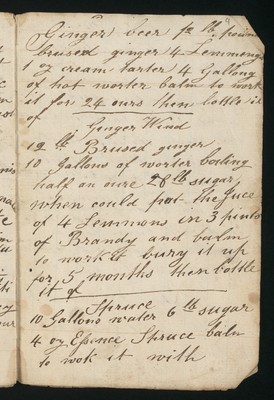 Ginger beer
brused ginger 4 Lemmons
1 oz cream tarter 4 Gallons
of hot worter balm to work
it for 24 ours then bottle it
of
Ginger Wind
12 lb Brused ginger
10 Gallons of worter boiling
half an oure 28 lb sugar
when could pot the Juce
of 4 Lemmons in 3 pints
of Brandy and balm
to work it bung it up
for 5 months then bottle
it of
Spruce
10 Gallons water 6 lb sugar
4 oz Essence Spruce balm
to wok it with